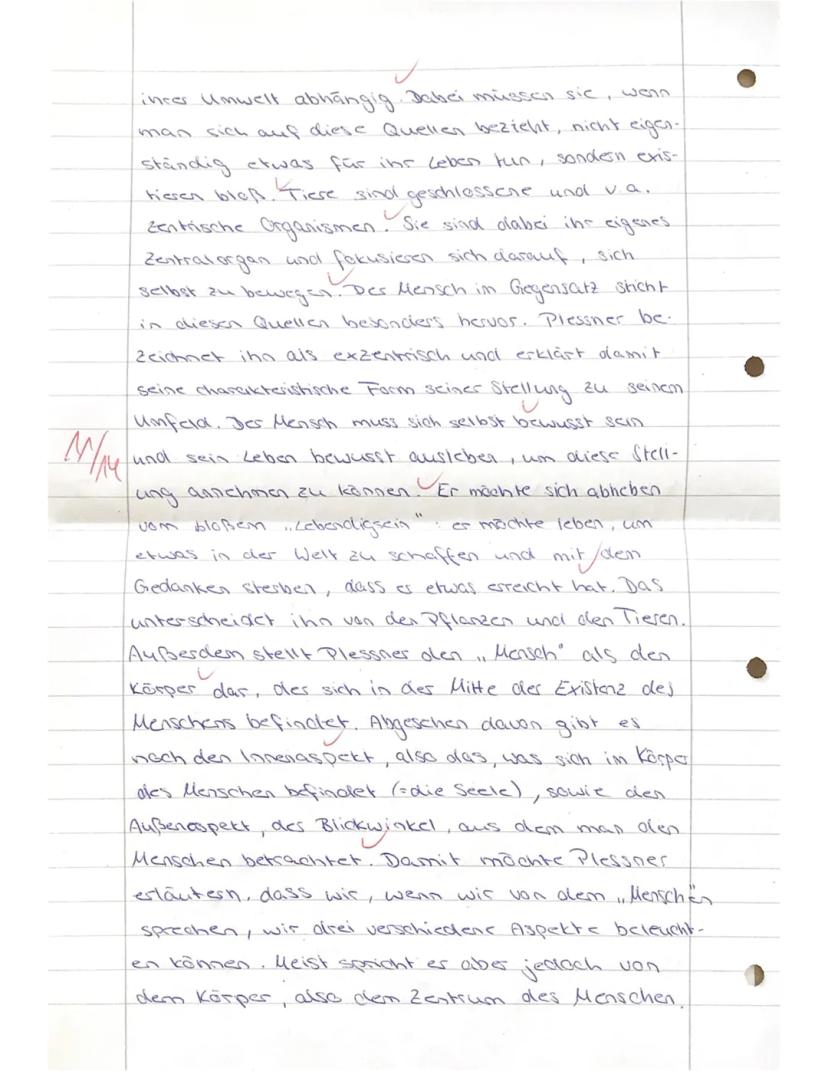 ihrer Umwelt abhängig. Dabei müssen sie, wenn
man sich auf diese Quellen bezieht, nicht eigen-
ständig etwas für ihr Leben tun, sondern exis-
tieren bloß. Tiere sind geschlossene und v.a.
zentrische Organismen. Sie sind dabei ihr eigenes
Zentralorgan und fokusieren sich darauf, sich
selbst zu bewegen. Der Mensch im Gegensatz sticht
in diesen Quellen besonders hervor. Plessner be-
zeichnet ihn als exzentrisch und erklärt damit
seine charakteristische Form seiner Stellung zu seinem
Umfeld. Der Mensch muss sich selbst bewusst sein
11/14
und sein Leben bewusst ausleben, um diese Stell-
ung annehmen zu können. Er möchte sich abheben
vom bloßem „Lebendigsein": er möchte leben, um
etwas in der Welt zu schaffen und mit dem
Gedanken sterben, dass er etwas erreicht hat. Das
unterscheidet ihn von den Pflanzen und den Tieren.
Außerdem stellt Plessner den „Mensch" als den
Körper dar, der sich in der Mitte der Existenz des
Menschens befindet. Abgesehen davon gibt es
noch den Innenaspekt, also das, was sich im Körper
des Menschen befindet (=die Seele), sowie den
Außenaspekt, der Blickwinkel, aus dem man den
Menschen betrachtet. Damit möchte Plessner
erläutern, dass wir, wenn wir von dem „Menschen"
sprechen, wir drei verschiedene Aspekte beleucht-
en können. Meist spricht er aber jedoch von
dem Körper, also dem Zentrum des Menschen.